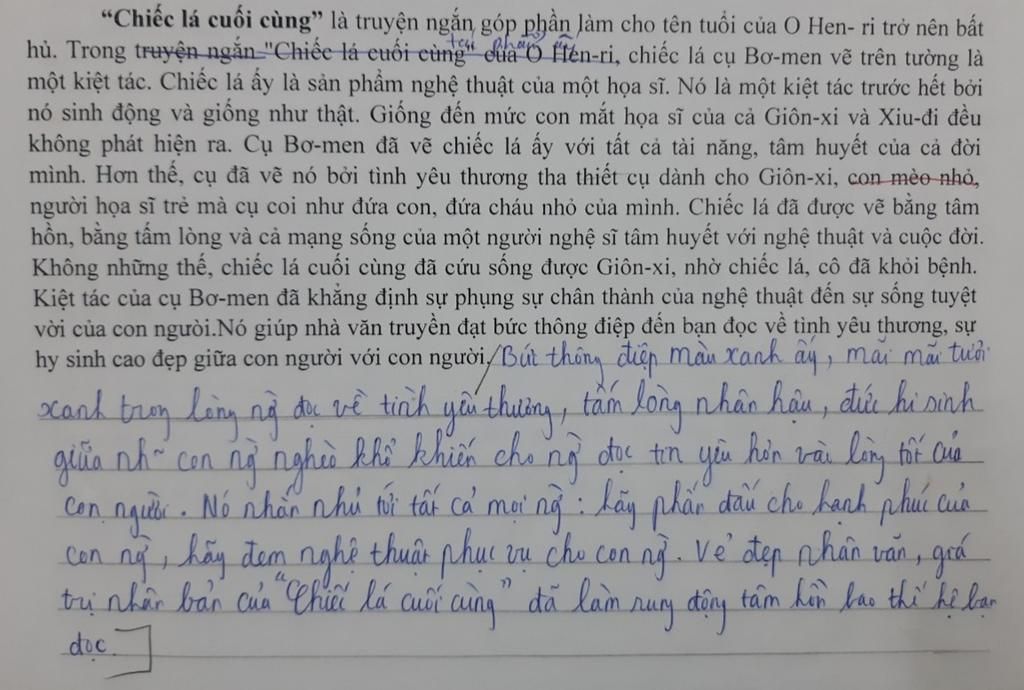 “Chiếc lá cuối cùng” là truyện ngắn góp phần làm cho tên tuổi của O Hen- ri trở nên bất
hủ. Trong truyện ngắn "Chiếc lá cuối cùng" của O Hen-ri, chiếc lá cụ Bơ-men vẽ trên tường là
tác phẩm
một kiệt tác. Chiếc lá ấy là sản phẩm nghệ thuật của một họa sĩ. Nó là một kiệt tác trước hết bởi
nó sinh động và giống như thật. Giống đến mức con mắt họa sĩ của cả Giôn-xi và Xiu-đi đều
không phát hiện ra. Cụ Bơ-men đã vẽ chiếc lá ấy với tất cả tài năng, tâm huyết của cả đời
mình. Hơn thế, cụ đã vẽ nó bởi tình yêu thương tha thiết cụ dành cho Giôn-xi, con mèo nhỏ,
người họa sĩ trẻ mà cụ coi như đứa con, đứa cháu nhỏ của mình. Chiếc lá đã được vẽ bằng tâm
hồn, bằng tấm lòng và cả mạng sống của một người nghệ sĩ tâm huyết với nghệ thuật và cuộc đời.
Không những thế, chiếc lá cuối cùng đã cứu sống được Giôn-xi, nhờ chiếc lá, cô đã khỏi bệnh.
Kiệt tác của cụ Bơ-men đã khẳng định sự phụng sự chân thành của nghệ thuật đến sự sống tuyệt
vời của con ngưòi.Nó giúp nhà văn truyền đạt bức thông điệp đến bạn đọc về tình yêu thương, sự
hy sinh cao đẹp giữa con người với con người/ Bức thông điệp màu xanh ấy, mãi mãi tươi
xanh trong lòng ng` đọc về tình yêu thương, tấm lòng nhân hậu, đức hi sinh
giữa nh~ con ng` nghèo khổ khiến cho ng` đọc tin yêu hơn vào lòng tốt của
con người. Nó nhắn nhủ tới tất cả mọi ng`: hãy phấn đấu cho hạnh phúc của
con ng`, hãy đem nghệ thuật phục vụ cho con ng`. Vẻ đẹp nhân văn, giá
trị nhân bản của “Chiếc lá cuối cùng” đã làm rung động tâm hồn bao thế hệ bạn
đọc.